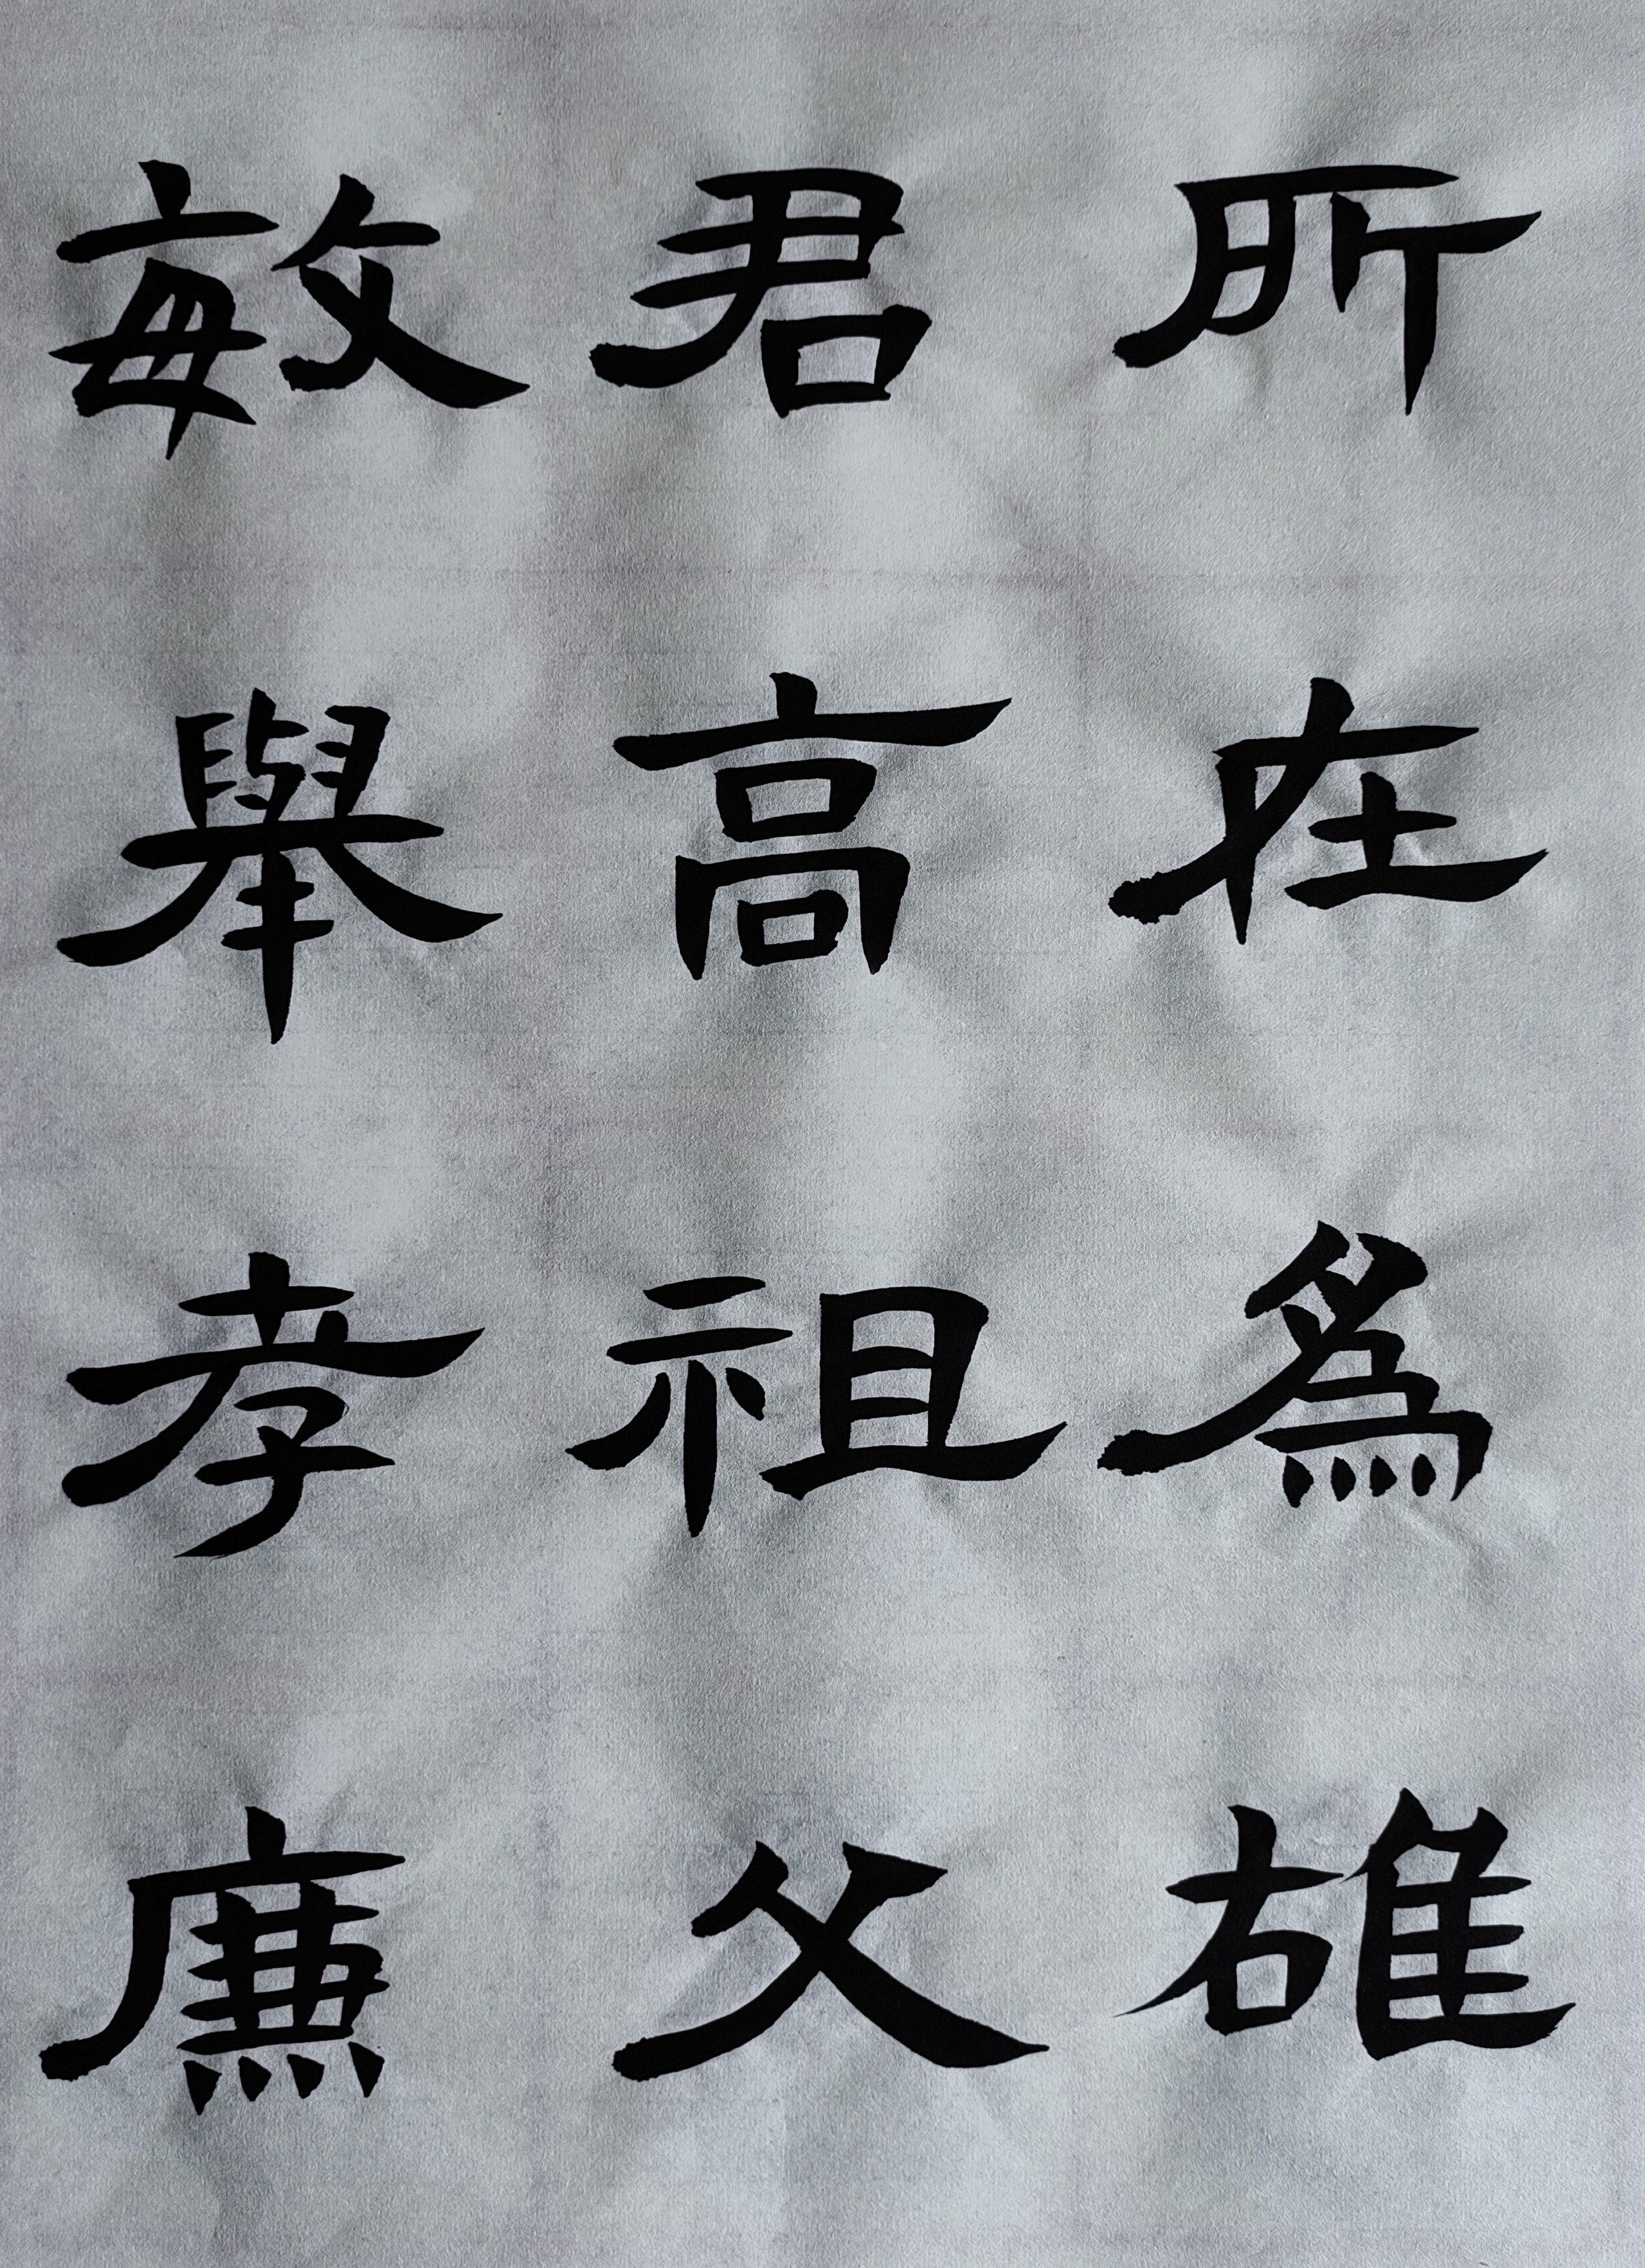 所在為雄
君高祖父
敏舉孝廉